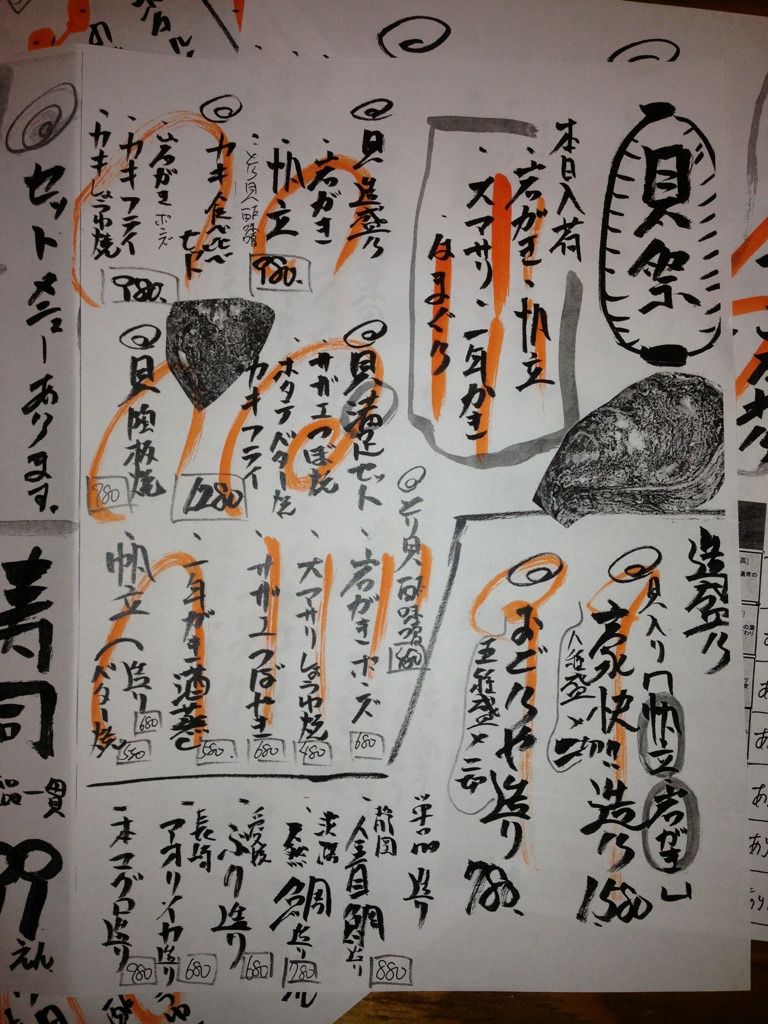 貝祭
本日入荷
・岩がき・帆立
・大マサリ・一年かき
・はまぐり
◎貝造盛り
・岩がき
・帆立
・とり貝酢味噌
980.
◎カキ食べ比べセット
・岩がきポン酢
・カキフライ
・カキしょうゆ焼
980.
◎貝満足セット
サザエつぼ焼
ホタテバター焼
カキフライ
1280
◎貝陶板焼
980
造盛り
◎貝入り「帆立岩がき」
豪快造り
1580
八種盛×二切
◎おごりや造り
780.
五種盛×二切
◎とり貝酢味噌
680
・岩がきポンズ
680
・大マサリしょうゆ焼
480
・サザエつぼやき
680
・一年がき酒蒸し
580
・帆立(造り
680
バター焼
550
単品造り
・静岡
金目鯛造り
880
・淡路
天然鯛造り
780
・愛媛
ぶり造り
680
・長崎
アオリイカ造り
680
・本マグロ造り
980
◎セットメニューあります。
寿司
一貫
99えん